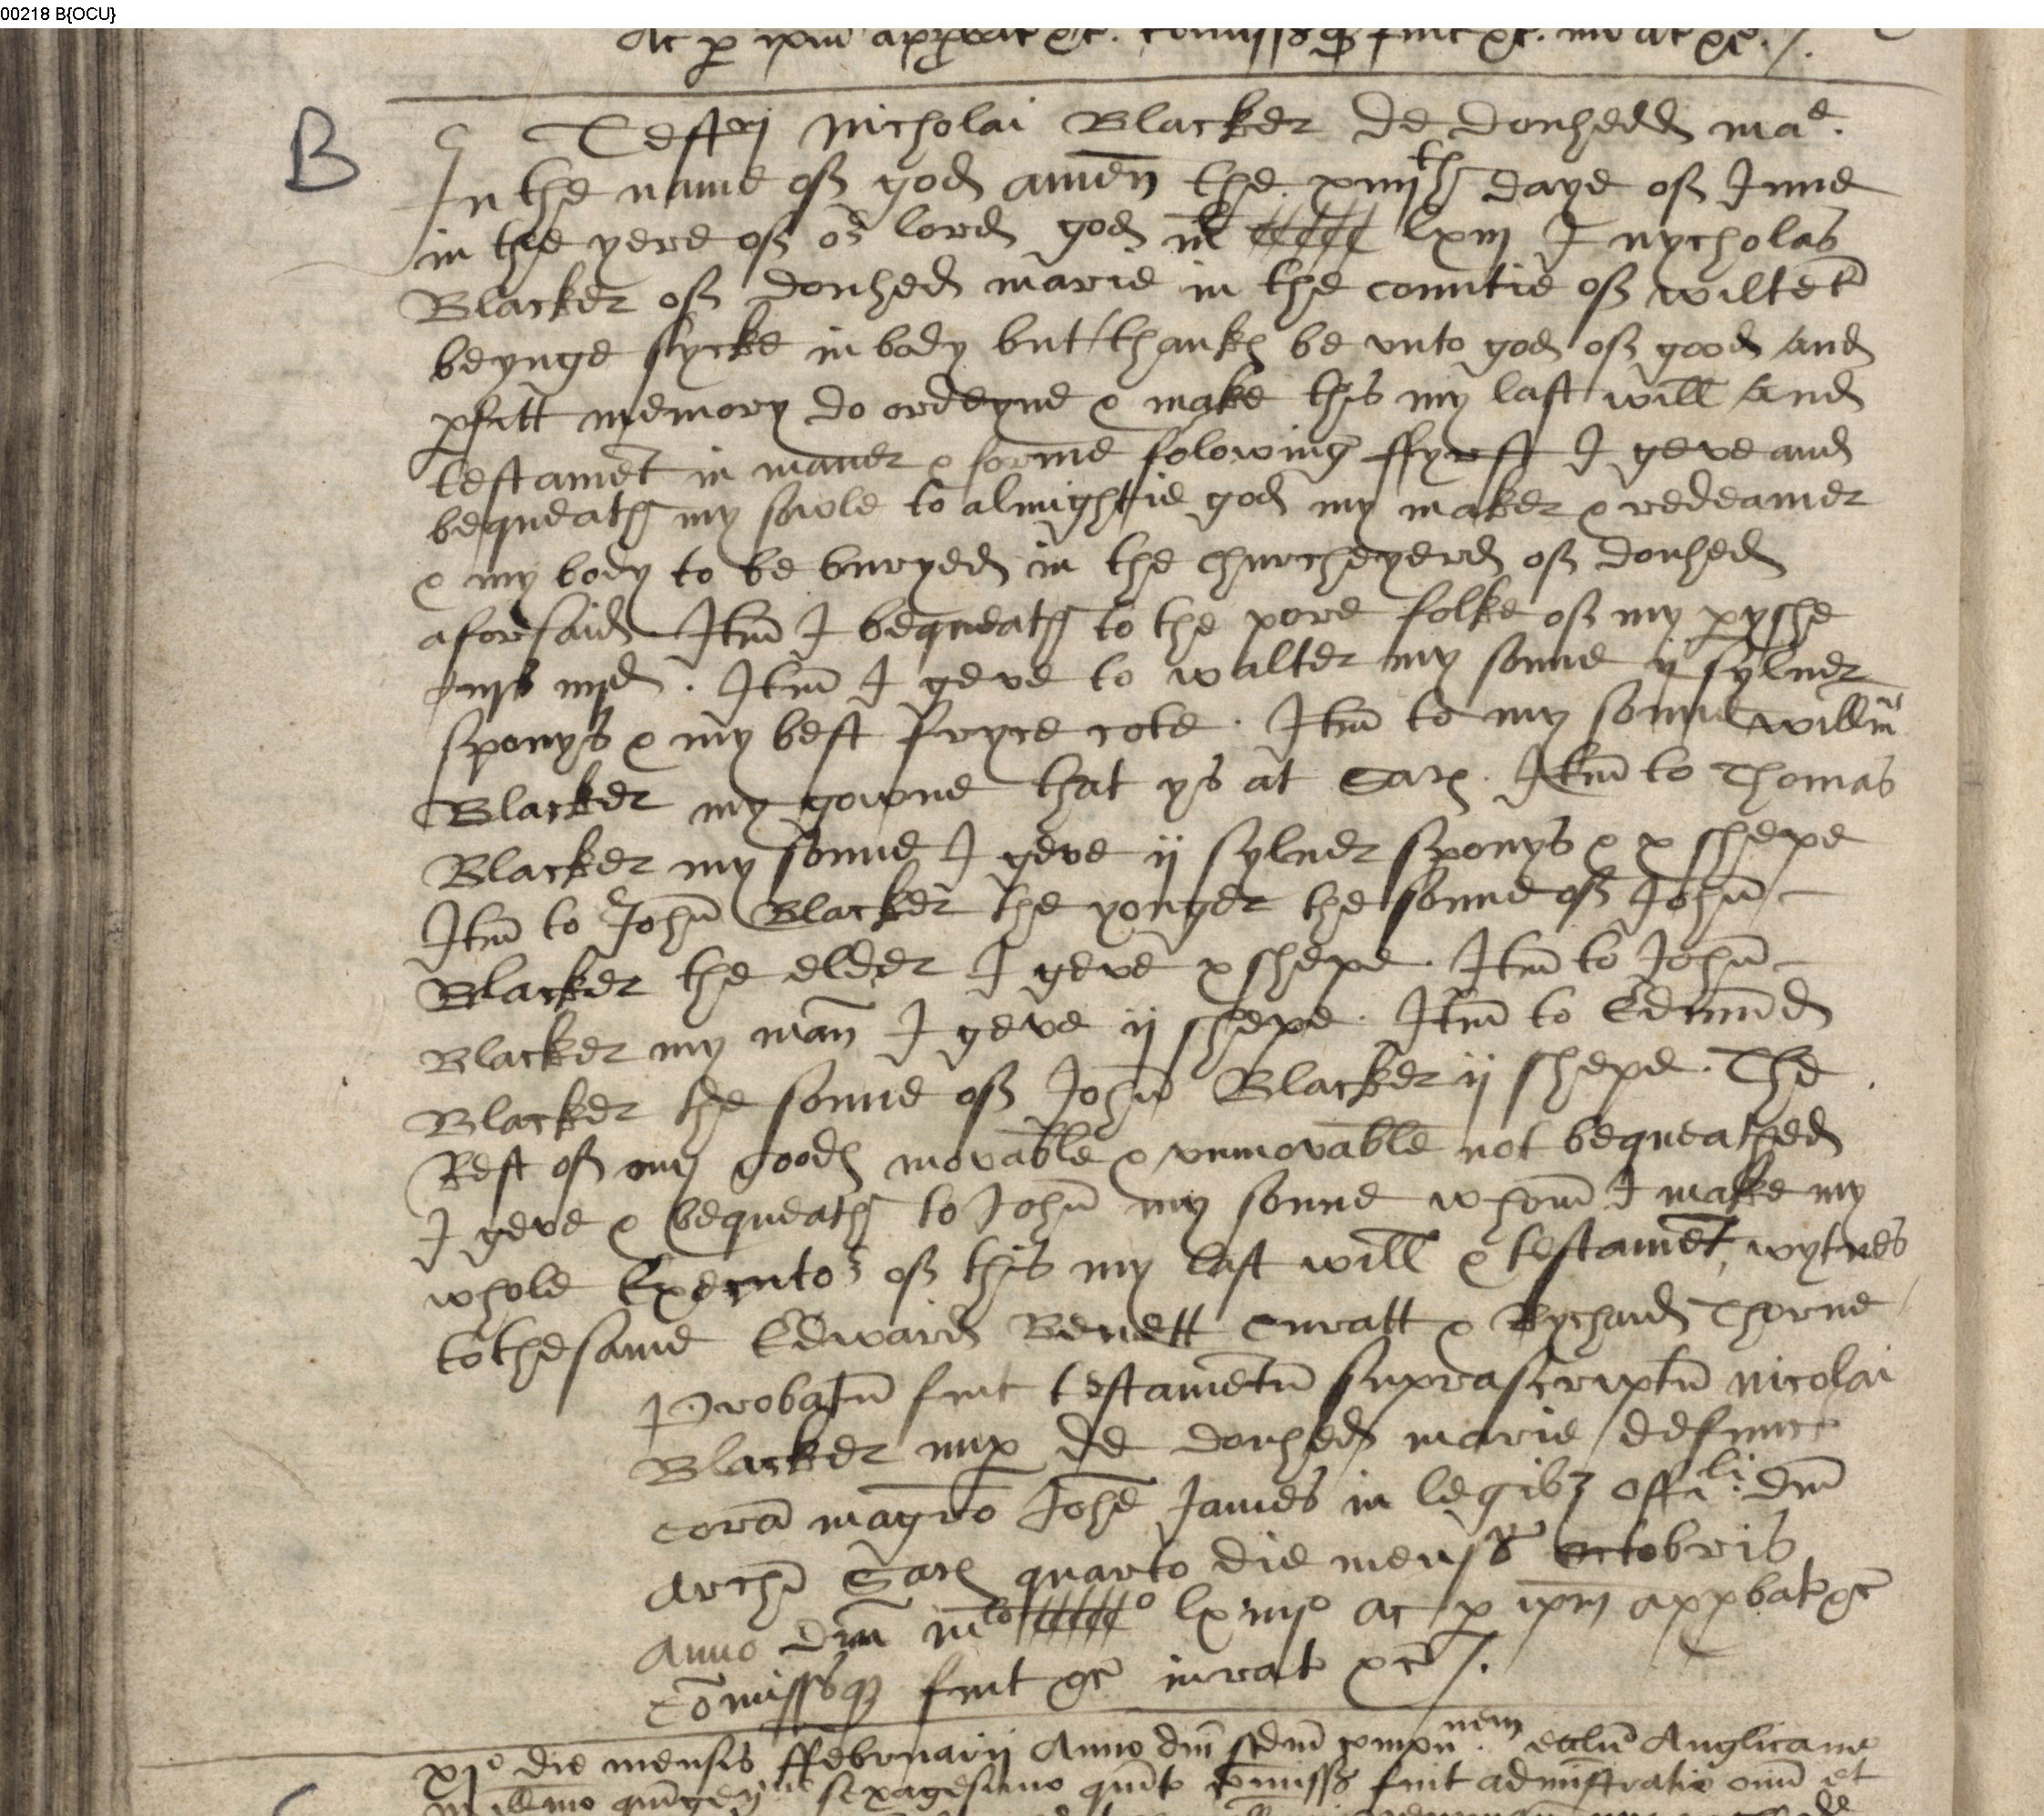 00218 B{OCU}
Ac p ipm approbat &c. comissaq fuit &c. iurat &c.
B
Testm Nicholai Blacker de donhedd mae.
In the name off god amen the xiiijth daye off June
in the yere off or lord god ml ccccc lxiij I nycholas
Blacker off donhed marie in the countie off wiltes
beynge sycke in body but thanks be unto god off good and
pfitt memory do ordeyne & make this my last will and
testamet in maner & forme folowing ffyrst I geve and
bequeath my sowle to almightie god my maker & redeamer
& my body to be buryed in the churcheyerd off donhed
aforsaid Itm I bequeath to the pore folke off my pyshe
iijs iiijd. Itm I geve to walter my sonne ij sylver
sponys & my best fryce cote. Itm to my sonne willm
Blacker my gowne that ys at Sar. Itm to Thomas
Blacker my sonne I geve ij sylver sponys & x shepe
Itm to John Blacker the yonger the sonne off John
Blacker the elder I geve x shepe. Itm to John
Blacker my man I geve ij shepe. Itm to Edmund
Blacker the sonne off John Blacker ij shepe. The
Rest off my goods movable & unmovable not bequeathed
I geve & bequeath to John my sonne whom I make my
whole Executor off this my last will & testamet, wytnes
to the same Edward Benett curatt & Rychard Thorne
Probatu fuit testametu suprascriptu Nicolai
Blacker nup de donhed marie defunct
cora magro Johe James in legibz offili dni
Archi Sar quarto die mensis octobris
Anno dni mlo ccccco lxiiijo ac p ipm appbat &c
comissaq fuit &c iurat &c.
xjo die mensis ffebruarij Anno dni scdm computnem ecclie Anglicane
millmo quingenmo sexagesimo quinto comissa fuit administratio oium et